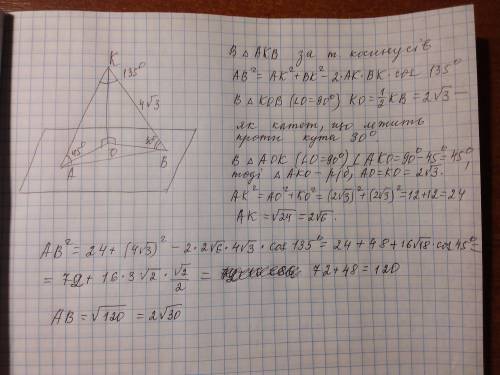 K
135°
4√3
45°
30°
O
A
B
В △ AKB за т. косинусів
AB² = AK² + BK² - 2·AK·BK·cos 135°
В △ KOB (∠O=90°) KO = 1/2 KB = 2√3 –
як катет, що лежить
проти кута 30°
В △ AOK (∠O=90°) ∠AKO = 90° - 45° = 45°,
тоді △ AKO – р/б, AO = KO = 2√3.
AK² = AO² + KO² = (2√3)² + (2√3)² = 12 + 12 = 24
AK = √24 = 2√6.
AB² = 24 + (4√3)² - 2·2√6·4√3·cos 135° = 24 + 48 + 16√18·cos 45° =
= 72 + 16·3√2·√2/2 = 72 + 48 = 120
AB = √120 = 2√30